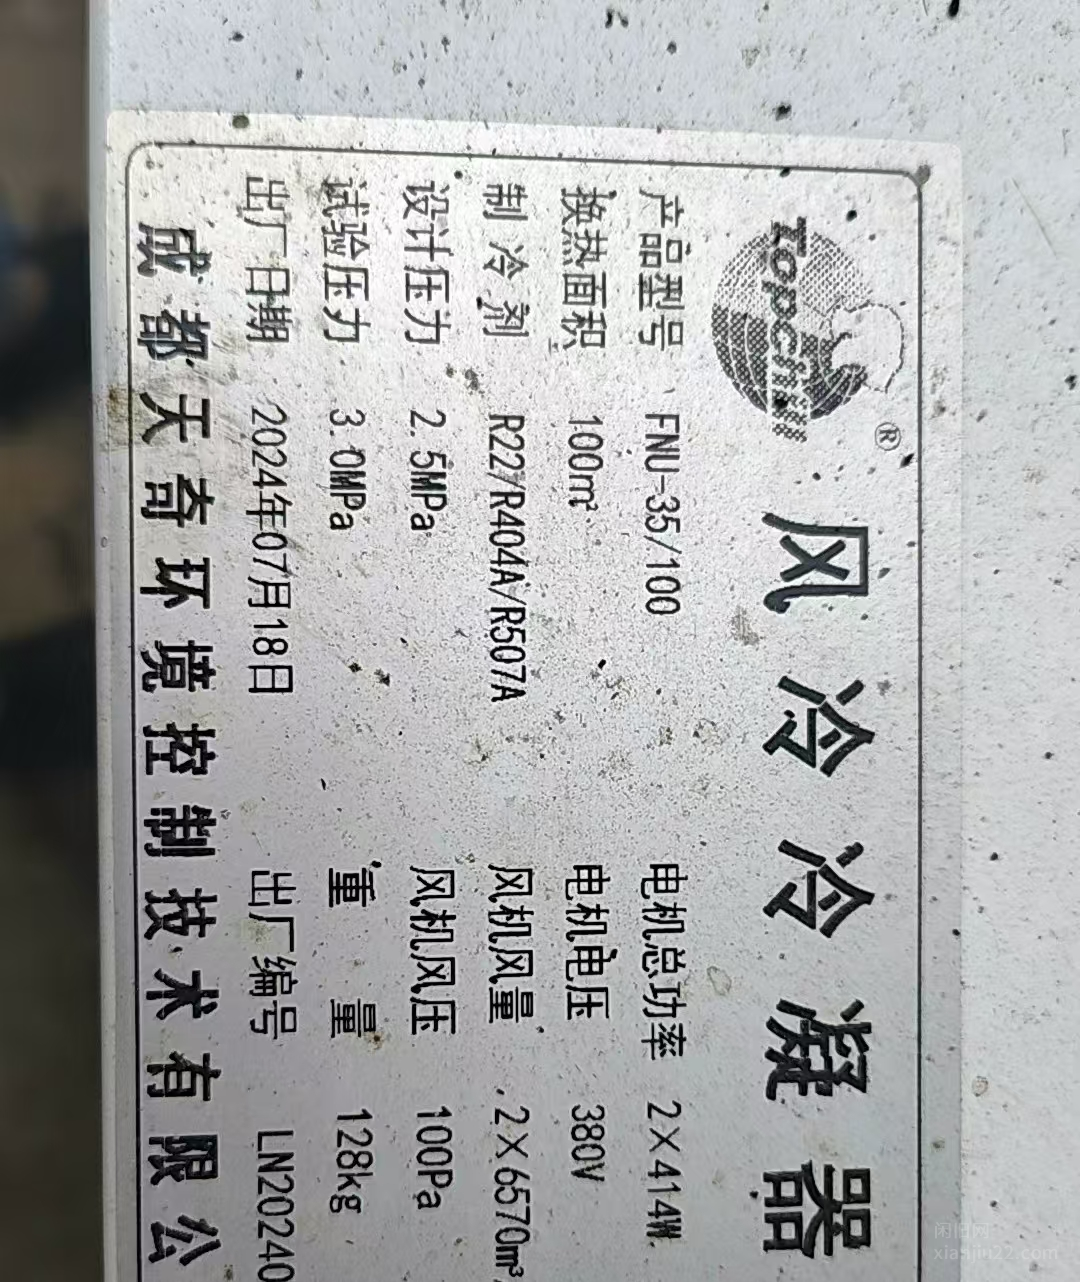 Topchill ®
风冷冷凝器
产品型号 FNU-35/100 电机总功率 2×414W
换热面积 100m² 电机电压 380V
制冷剂 R22/R404A/R507A 风机风量 2×6570m³
设计压力 2.5MPa 风机风压 100Pa
试验压力 3.0MPa 重量 128kg
出厂日期 2024年07月18日 出厂编号 LN20240
成都天奇环境控制技术有限公
闲旧网
xianjiu22.com